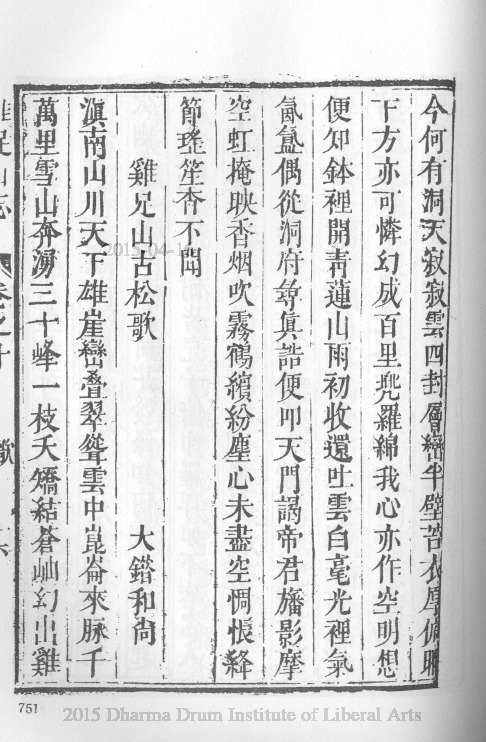 今何有洞天寂寂雲四封層巒半壁苔衣厚俯瞰
下方亦可憐幻成百里兜羅綿我心亦作空明想
便知鉢裡開靑蓮山雨初收還吐雲白毫光裡氣
氤氳偶從洞府尋眞誥便叩天門謁帝君旛影摩
空虹掩映香烟吹霧鶴繽紛塵心未盡空惆悵絳
節瑤笙杳不聞
雞足山古松歌 大錯和尙
滇南山川天下雄崖巒疊翠聳雲中崑崙來脉千
萬里雪山奔湧三十峰一枝夭矯結蒼岫幻出雞
雞足山志 卷之十
751
2015-04-1
2015 Dharma Drum Institute of Liberal Arts